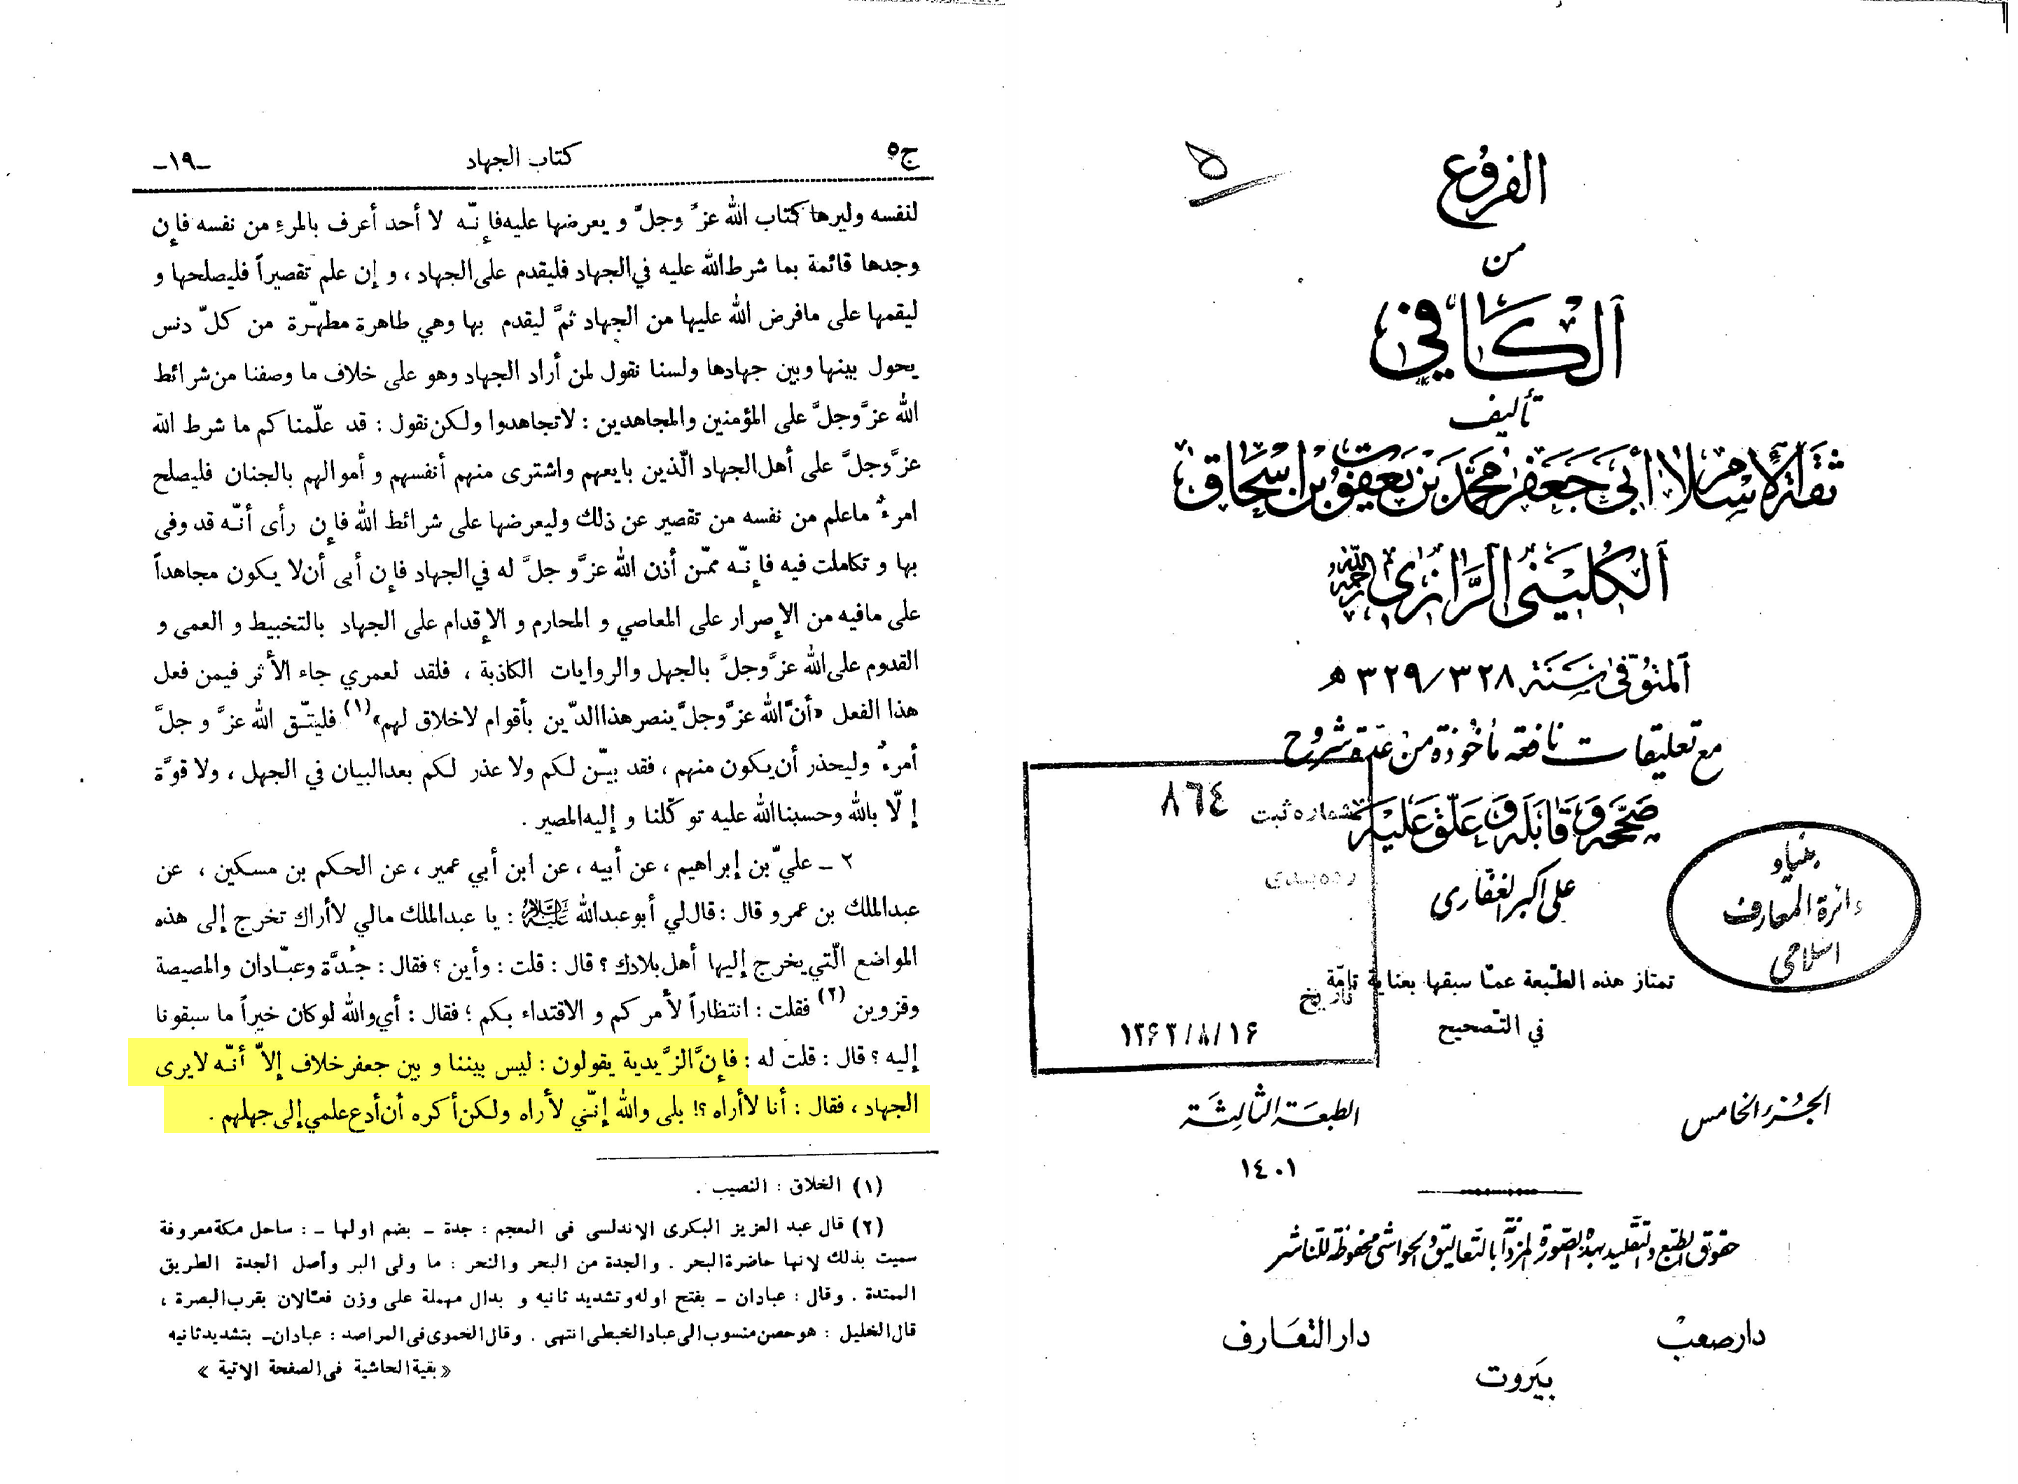 الفروع
من
الكافي
تأليف
ثقة الإسلام أبي جعفر محمد بن يعقوب بن إسحاق
الكليني الرازي رحمه الله
المتوفى سنة ٣٢٨/٣٢٩ ه
مع تعليقات نافعة مأخوذة من عدة شروح
صححه وقابله وعلق عليه
علي أكبر الغفاري
شماره ثبت ٨٦٤
رده بندی
تاريخ
١٣۶٢/٨/١۶
بنیاد
دائرة المعارف
اسلامی
تمتاز هذه الطبعة عمّا سبقها بعناية تامّة
في التّصحيح
الجزء الخامس
الطبعة الثالثة
١٤٠١
حقوق الطبع والتقليد بهذه الصورة المزدانة بالتعاليق والحواشي محفوظة للناشر
دار صعب
دار التعارف
بيروت
ج٥
كتاب الجهاد
-١٩-
لنفسه وليرها كتاب الله عزَّ وجلَّ و يعرضها عليه فإنّه لا أحد أعرف بالمرءِ من نفسه فإن
وجدها قائمة بما شرط الله عليه في الجهاد فليقدم على الجهاد ، و إن علم تقصيراً فليصلحها و
ليقمها على ما فرض الله عليها من الجهاد ثمَّ ليقدم بها وهي طاهرة مطهّرة من كلّ دنس
يحول بينها وبين جهادها ولسنا نقول لمن أراد الجهاد وهو على خلاف ما وصفنا من شرائط
الله عزَّ وجلَّ على المؤمنين والمجاهدين : لا تجاهدوا ولكن نقول : قد علّمناكم ما شرط الله
عزَّ وجلَّ على أهل الجهاد الّذين بايعهم واشترى منهم أنفسهم و أموالهم بالجنان فليصلح
امرءٌ ما علم من نفسه من تقصير عن ذلك وليعرضها على شرائط الله فإن رأى أنّه قد وفى
بها و تكاملت فيه فإنّه ممّن أذن الله عزَّ و جلَّ له في الجهاد فإن أبى أن لا يكون مجاهداً
على ما فيه من الإصرار على المعاصي و المحارم و الإقدام على الجهاد بالتخبيط و العمى و
القدوم على الله عزَّ وجلَّ بالجهل والروايات الكاذبة ، فلقد لعمري جاء الأثر فيمن فعل
هذا الفعل «أنَّ الله عزَّ وجلَّ ينصر هذا الدّين بأقوام لا خلاق لهم» (١) فليتّق الله عزَّ و جلَّ
أمرءٌ وليحذر أن يكون منهم ، فقد بيّن لكم ولا عذر لكم بعد البيان في الجهل ، ولا قوَّة
إلّا بالله وحسبنا الله عليه توكّلنا و إليه المصير .
٢ ـ عليّ بن إبراهيم ، عن أبيه ، عن ابن أبي عمير ، عن الحكم بن مسكين ، عن
عبد الملك بن عمرو قال : قال لي أبو عبدالله عليه السلام : يا عبد الملك مالي لا أراك تخرج إلى هذه
المواضع الّتي يخرج إليها أهل بلادك ؟ قال : قلت : وأين ؟ فقال : جُدَّة وعبّادان والمصيصة
وقزوين (٢) فقلت : انتظاراً لأمركم و الاقتداء بكم ؛ فقال : أي والله لو كان خيراً ما سبقونا
إليه ؟ قال : قلت له : فإنَّ الزَّيدية يقولون : ليس بيننا و بين جعفر خلاف إلاّ أنّه لا يرى
الجهاد ، فقال : أنا لا أراه ؟! بلى والله إنّي لأراه ولكن أكره أن أدع علمي إلى جهلهم .
(١) الخلاق : النصيب .
(٢) قال عبد العزيز البكرى الاندلسى فى المعجم : جدة ـ بضم اولها ـ : ساحل مكة معروفة
سميت بذلك لانها حاضرة البحر . والجدة من البحر والنحر : ما ولى البر وأصل الجدة الطريق
الممتدة . وقال : عبادان ـ بفتح اوله وتشديد ثانيه و بدال مهملة على وزن فعّالان بقرب البصرة ،
قال الخليل : هو حصن منسوب الى عباد الخبطى انتهى . وقال الحموى فى المراصد : عبادان ـ بتشديد ثانيه
« بقية الحاشية فى الصفحة الاتية »